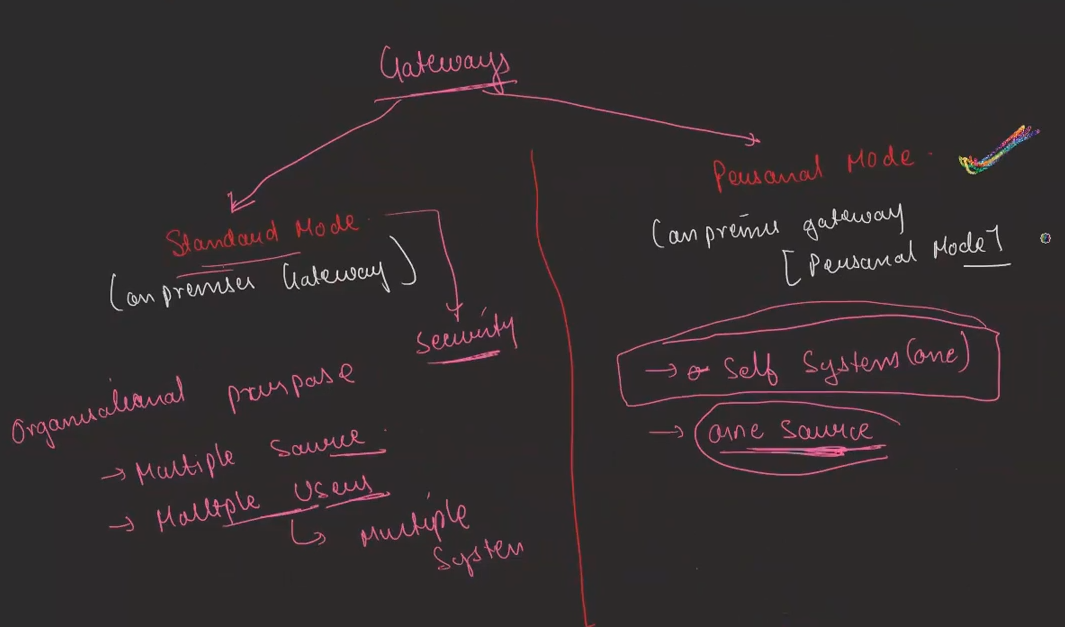 Gateways
Standard Mode
(on premises Gateway)
Security
Organisational purpose
→ Multiple Source
→ Multiple Users
Multiple
System
Personal Mode
(on premise gateway
[Personal Mode]
→ Self System (one)
→ one source